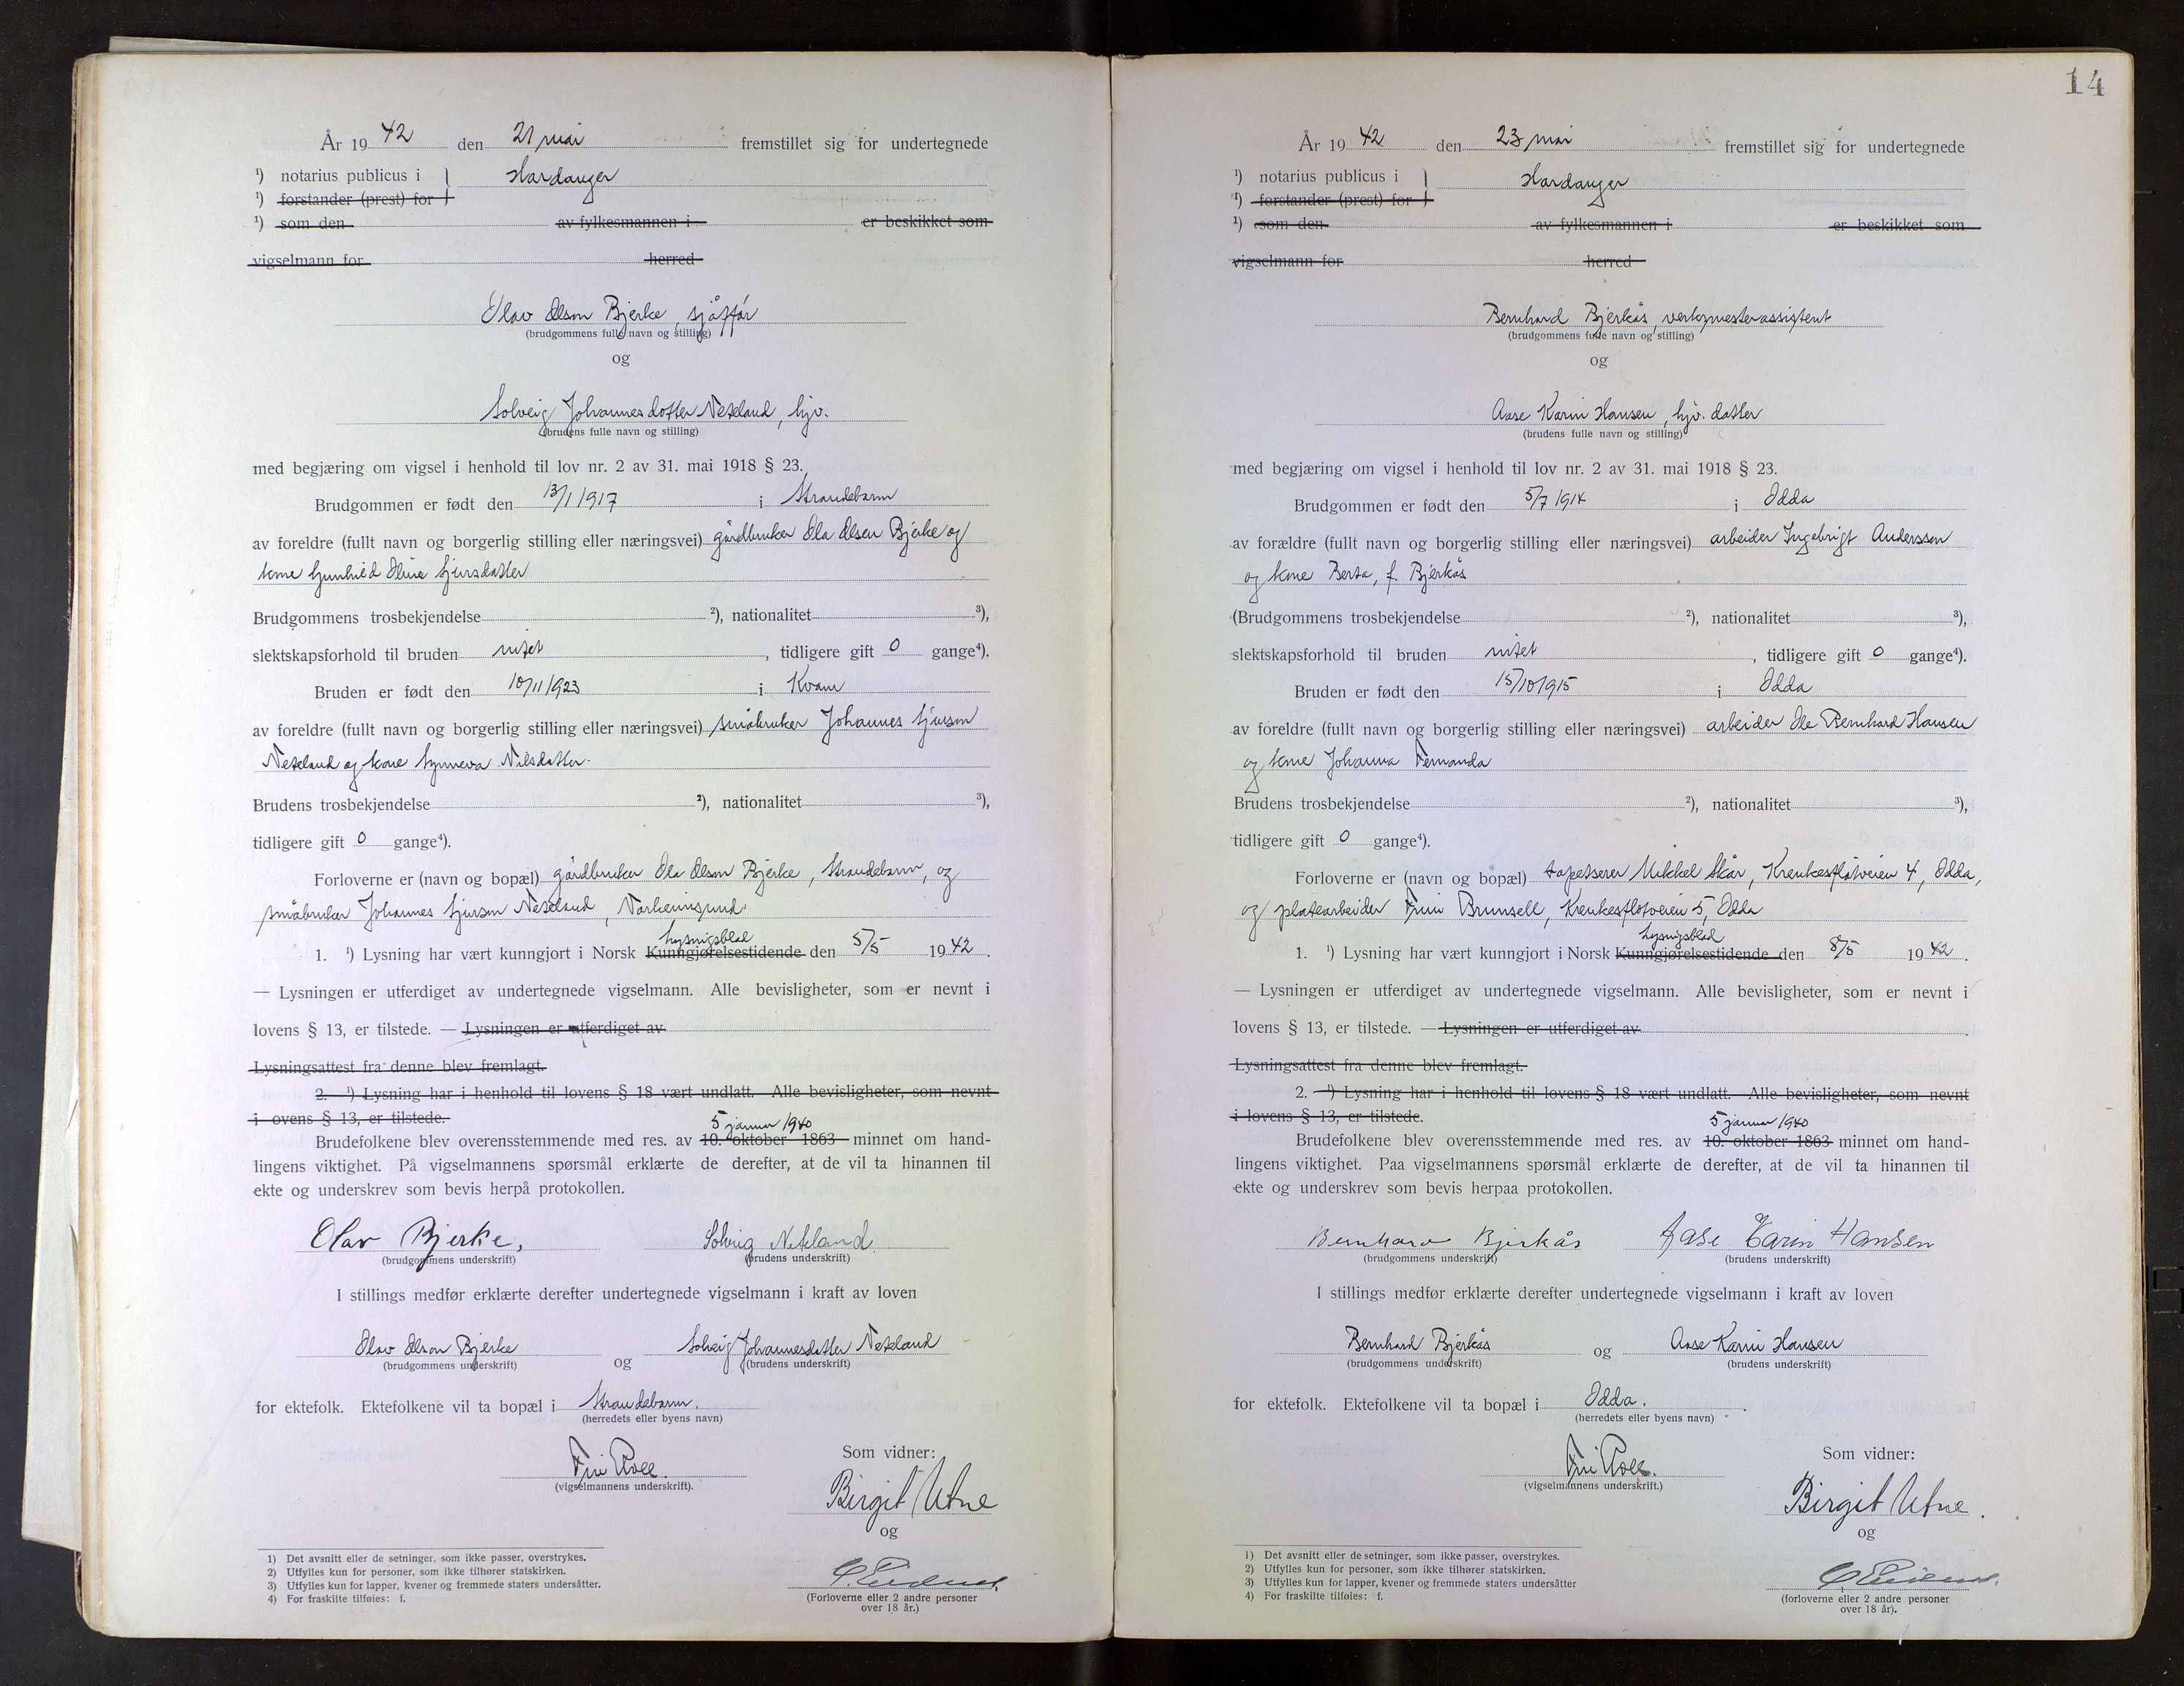 År 1942 den 21 mai fremstillet sig for undertegnede
¹) notarius publicus i } Hardanger
¹) forstander (prest) for }
¹) som den av fylkesmannen i er beskikket som
vigselmann for herred
Olav Olson Bjerke, sjåfför
(brudgommens fulle navn og stilling)
og
Solveig Johannesdotter Neteland, hjv.
(brudens fulle navn og stilling)
med begjæring om vigsel i henhold til lov nr. 2 av 31. mai 1918 § 23.
Brudgommen er født den 13/1 1917 i Strandebarm
av foreldre (fullt navn og borgerlig stilling eller næringsvei) gårdbruker Ola Olsen Bjerke og
kone Gunhild Oline Sjursdatter
Brudgommens trosbekjendelse ²), nationalitet ³),
slektskapsforhold til bruden intet, tidligere gift 0 gange⁴).
Bruden er født den 10/11 1923 i Kvam
av foreldre (fullt navn og borgerlig stilling eller næringsvei) småbruker Johannes Sjurson
Neteland og kone Synneva Nilsdatter.
Brudens trosbekjendelse ²), nationalitet ³),
tidligere gift 0 gange⁴).
Forloverne er (navn og bopæl) gårdbruker Ola Olson Bjerke, Strandebarm, og
småbruker Johannes Sjurson Neteland, Norheimsund.
Lysingsblad
1. ¹) Lysning har vært kunngjort i Norsk Kunngjørelsestidende den 5/5 1942.
— Lysningen er utferdiget av undertegnede vigselmann. Alle bevisligheter, som er nevnt i
lovens § 13, er tilstede. — Lysningen er utferdiget av
Lysningsattest fra denne blev fremlagt.
2. ¹) Lysning har i henhold til lovens § 18 vært undlatt. Alle bevisligheter, som nevnt
i ovens § 13, er tilstede.
5 januar 1940
Brudefolkene blev overensstemmende med res. av 10. oktober 1863 minnet om hand-
lingens viktighet. På vigselmannens spørsmål erklærte de derefter, at de vil ta hinannen til
ekte og underskrev som bevis herpå protokollen.
Olav Bjerke, Solveig Neteland
(brudgommens underskrift) (brudens underskrift)
I stillings medfør erklærte derefter undertegnede vigselmann i kraft av loven
Olav Olson Bjerke og Solveig Johannesdotter Neteland
(brudgommens underskrift) (brudens underskrift)
for ektefolk. Ektefolkene vil ta bopæl i Strandebarm.
(herredets eller byens navn)
Som vidner:
(vigselmannens underskrift).
Birgit Utne
og
1) Det avsnitt eller de setninger, som ikke passer, overstrykes.
2) Utfylles kun for personer, som ikke tilhører statskirken.
3) Utfylles kun for lapper, kvener og fremmede staters undersåtter.
4) For fraskilte tilføies: f.
(Forloverne eller 2 andre personer
over 18 år.)
14
År 1942 den 23 mai fremstillet sig for undertegnede
¹) notarius publicus i } Hardanger
¹) forstander (prest) for }
¹) som den av fylkesmannen i er beskikket som
vigselmann for herred
Bernhard Bjerkås, verksmesterassistent
(brudgommens fulle navn og stilling)
og
Aase Karin Hansen, hjv. datter
(brudens fulle navn og stilling)
med begjæring om vigsel i henhold til lov nr. 2 av 31. mai 1918 § 23.
Brudgommen er født den 5/7 1914 i Odda
av forældre (fullt navn og borgerlig stilling eller næringsvei) arbeider Ingebrigt Anderssen
og kone Berta, f. Bjerkås
(Brudgommens trosbekjendelse ²), nationalitet ³),
slektskapsforhold til bruden intet, tidligere gift 0 gange⁴).
Bruden er født den 15/10 1915 i Odda
av foreldre (fullt navn og borgerlig stilling eller næringsvei) arbeider Ole Bernhard Hansen
og kone Johanna Fernanda
Brudens trosbekjendelse ²), nationalitet ³),
tidligere gift 0 gange⁴).
Forloverne er (navn og bopæl) tapetserer Mikkel Skår, Krenkesflotveien 4, Odda,
og platearbeider Brunsell, Krenkesflotveien 5, Odda
Lysingsblad
1. ¹) Lysning har vært kunngjort i Norsk Kunngjørelsestidende den 8/5 1942.
— Lysningen er utferdiget av undertegnede vigselmann. Alle bevisligheter, som er nevnt i
lovens § 13, er tilstede. — Lysningen er utferdiget av
Lysningsattest fra denne blev fremlagt.
2. ¹) Lysning har i henhold til lovens § 18 vært undlatt. Alle bevisligheter, som nevnt
i lovens § 13, er tilstede.
5 januar 1940
Brudefolkene blev overensstemmende med res. av 10. oktober 1863 minnet om hand-
lingens viktighet. Paa vigselmannens spørsmål erklærte de derefter, at de vil ta hinannen til
ekte og underskrev som bevis herpaa protokollen.
Bernhard Bjerkås Aase Karin Hansen
(brudgommens underskrift) (brudens underskrift)
I stillings medfør erklærte derefter undertegnede vigselmann i kraft av loven
Bernhard Bjerkås og Aase Karin Hansen
(brudgommens underskrift) (brudens underskrift)
for ektefolk. Ektefolkene vil ta bopæl i Odda.
(herredets eller byens navn)
Som vidner:
(vigselmannens underskrift.)
Birgit Utne.
og
1) Det avsnitt eller de setninger, som ikke passer, overstrykes.
2) Utfylles kun for personer, som ikke tilhører statskirken.
3) Utfylles kun for lapper, kvener og fremmede staters undersåtter
4) For fraskilte tilføies: f.
(forloverne eller 2 andre personer
over 18 år).